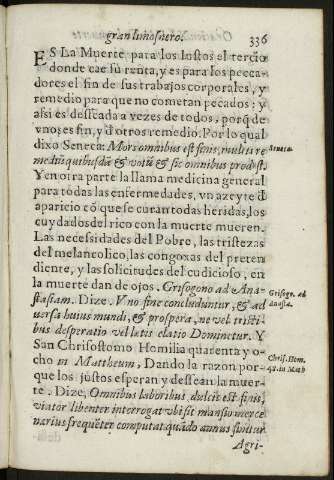 gran limosnero. 336
ES La Muerte para los Iustos el tercio
donde cae su renta, y es para los pecca-
dores el fin de sus trabajos corporales, y
remedio para que no cometan pecados: y
assi es desseada a vezes de todos, porq̃ de
vno, es fin, y d̃ otros remedio. Por lo qual
dixo Seneca: Mors omnibus est finis, multis re
mediũ quibusdã & votũ & sic omnibus prodest.
Seneca.
Y en otra parte la llama medicina general
para todas las enfermedades, vn azeyte d̃
aparicio cõ que se curan todas heridas, los
cuydados del rico con la muerte mueren.
Las necessidades del Pobre, las tristezas
del melancolico, las congoxas del preten
diente, y las solicitudes del cudicioso, en
la muerte dan de ojos. Grisogono ad Ana-
Grisogo. ad
stasiam. Dize. Vno fine concluduntur, & ad
uersa huius mundi, & prospera, ne vel tristi-
bus desperatio vel latis elatio Dominetur. Y
San Chrisostomo Homilia quarenta y o-
cho in Mattheum, Dando la razon por-
Chris. Hom.
48. in Math
que los justos esperan y dessean la muer-
te. Dize, Omnibus laboribus, dulcis est finis,
viator libenter interrogat vbi sit mansio merce
narius frequẽter computat quãdo annus finitur
Agri-